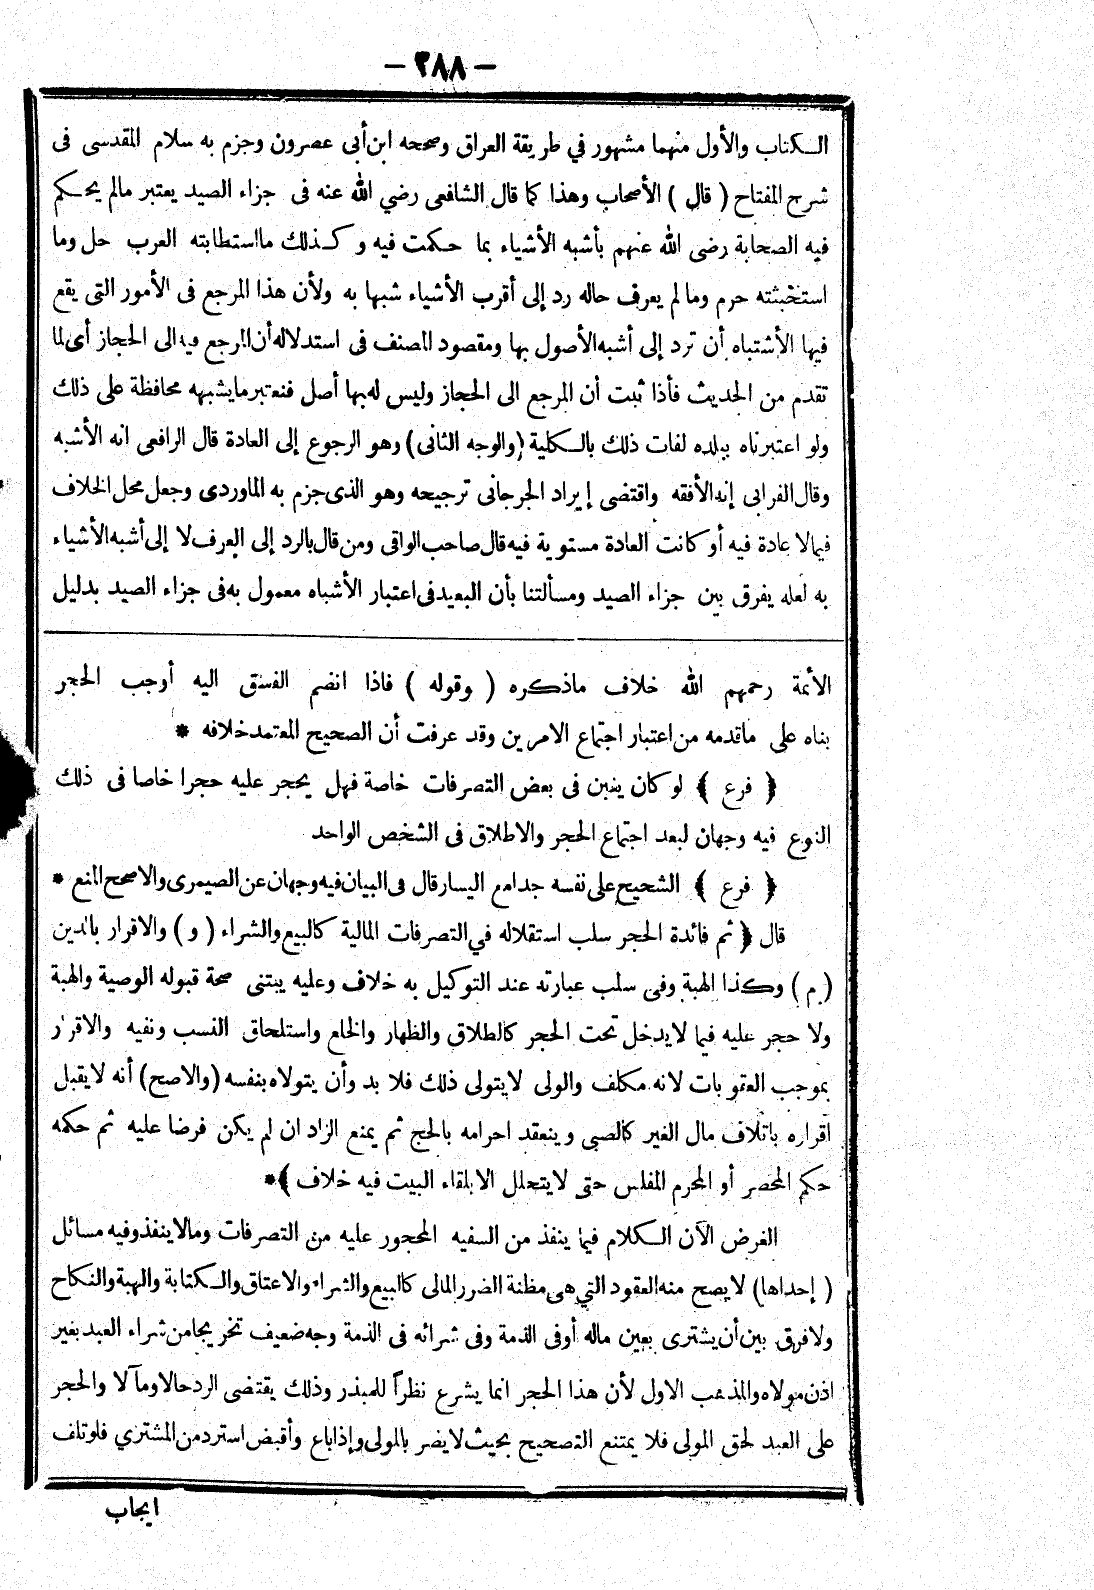 — ٢٨٨ —
الكتاب والأول منهما مشهور في طريقة العراق وصححه ابن أبى عصرون وجزم به سلام المقدسى فى
شرح المفتاح ( قال ) الأصحاب وهذا كما قال الشافعى رضي الله عنه فى جزاء الصيد يعتبر مالم يحكم
فيه الصحابة رضى الله عنهم بأشبه الأشياء بما حكمت فيه وكذلك مااستطابته العرب حل وما
استخبثته حرم ومالم يعرف حاله رد إلى أقرب الأشياء شبها به ولأن هذا المرجع فى الأمور التى يقع
فيها الأشتباه أن ترد إلى أشبه الأصول بها ومقصود المصنف فى استدلاله أن المرجع فيه الى الحجاز أى لما
تقدم من الحديث فأذا ثبت أن المرجع الى الحجاز وليس له بها أصل فنعتبر مايشبهه محافظة على ذلك
ولو اعتبرناه ببلده لفات ذلك بالكلية (والوجه الثانى) وهو الرجوع إلى العادة قال الرافعى انه الأشبه
وقال الفرابى إنه الأفقه واقتضى إيراد الجرجانى ترجيحه وهو الذى جزم به الماوردى وجعل محل الخلاف
فيمالا عادة فيه أو كانت العادة مستوية فيه قال صاحب الوافى ومن قال بالرد إلى العرف لا إلى أشبه الأشياء
به لعله يفرق بين جزاء الصيد ومسألتنا بأن البعيد فى اعتبار الأشباه معمول به فى جزاء الصيد بدليل
الأئمة رحمهم الله خلاف ماذكره ( وقوله ) فاذا انضم الفسق اليه أوجب الحجر
بناه على ماقدمه من اعتبار اجتماع الامرين وقد عرفت أن الصحيح المعتمد خلافه *
﴿ فرع ﴾ لو كان يغبن فى بعض التصرفات خاصة فهل يحجر عليه حجرا خاصا فى ذلك
النوع فيه وجهان لبعد اجتماع الحجر والاطلاق فى الشخص الواحد
﴿ فرع ﴾ الشحيح على نفسه جدا مع اليسار قال فى البيان فيه وجهان عن الصيمرى والاصح المنع *
قال ﴿ ثم فائدة الحجر سلب استقلاله في التصرفات المالية كالبيع والشراء ( و ) والاقرار بالدين
( م ) وكذا الهبة وفى سلب عبارته عند التوكيل به خلاف وعليه يبتنى صحة قبوله الوصية والهبة
ولا حجر عليه فيما لا يدخل تحت الحجر كالطلاق والظهار والخلع واستلحاق النسب ونفيه والاقرار
بموجب العقوبات لانه مكلف والولى لا يتولى ذلك فلا بد وأن يتولاه بنفسه (والاصح) أنه لا يقبل
اقراره باتلاف مال الغير كالصبى وينعقد احرامه بالحج ثم يمنع الزاد ان لم يكن فرضا عليه ثم حكمه
حكم المحصر أو المحرم المفلس حتى لا يتحلل الا بلقاء البيت فيه خلاف ﴾ *
الغرض الآن الكلام فيما ينفذ من السفيه المحجور عليه من التصرفات ومالا ينفذ وفيه مسائل
( إحداها ) لا يصح منه العقود التي هى مظنة الضرر المالى كالبيع والشراء والاعتاق والكتابة والهبة والنكاح
ولا فرق بين أن يشترى بعين ماله أو فى الذمة وفى شرائه فى الذمة وجه ضعيف تخريجا من شراء العبد بغير
اذن مولاه والمذهب الاول لأن هذا الحجر انما يشرع نظراً للمبذر وذلك يقتضى الرد حالا ومآلا والحجر
على العبد لحق المولى فلا يمتنع التصحيح بحيث لا يضر بالمولى وإذا باع وأقبض استرد من المشتري فلو تلف
ايجاب